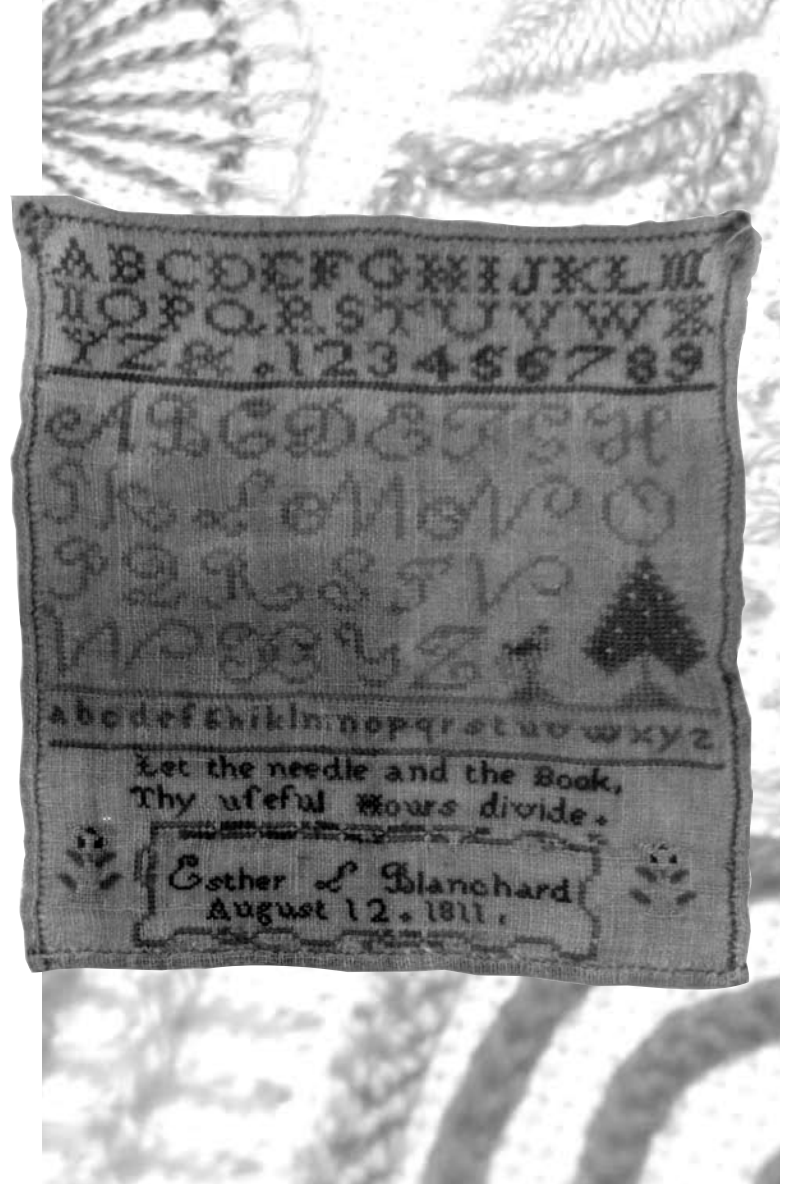 ABCDEFGHIJKLM
NOPQRSTUVWX
YZ&.123456789
ABCDEFGH
IKLMNO
PQRSTV
WXYZ
abcdefghiklmnopqrstuvwxyz
Let the needle and the Book,
Thy uſeful Hours divide.
Esther L Blanchard
August 12. 1811.